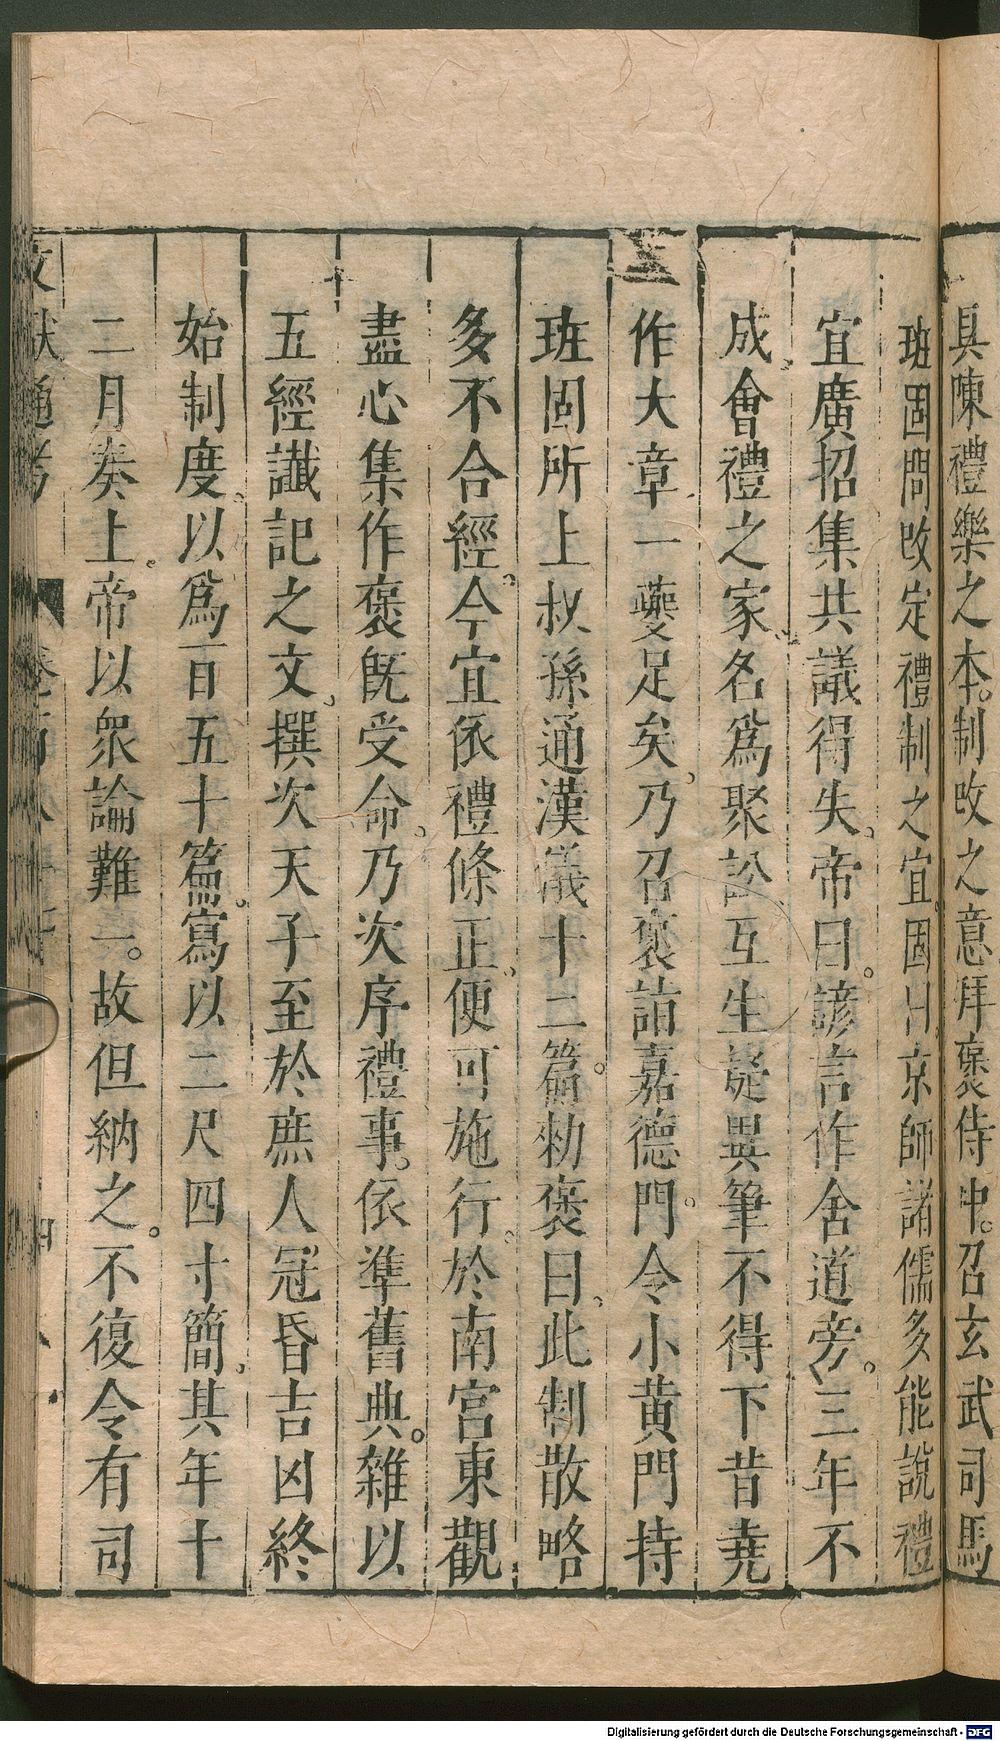 具陳禮樂之本。制改之意拜褒侍中。召玄武司馬
班固問改定禮制之宜。固曰京師諸儒多能說禮
宜廣招集共議得失。帝曰。諺言作舍道旁。三年不
成。會禮之家。名爲聚訟。互生疑異筆不得下昔堯
作大章。一夔足矣。乃召褒詣嘉德門。令小黄門持
班固所上叔孫通漢儀十二篇。勑褒曰。此制散略
多不合經。今宜依禮條正。便可施行。於南宮東觀
盡心集作褒旣受命。乃次序禮事。依準舊典。雜以
五經讖記之文。撰次天子至於庶人冠昏吉凶終
始制度。以爲百五十篇。寫以二尺四寸簡。其年十
二月奏上。帝以衆論難一。故但納之。不復令有司